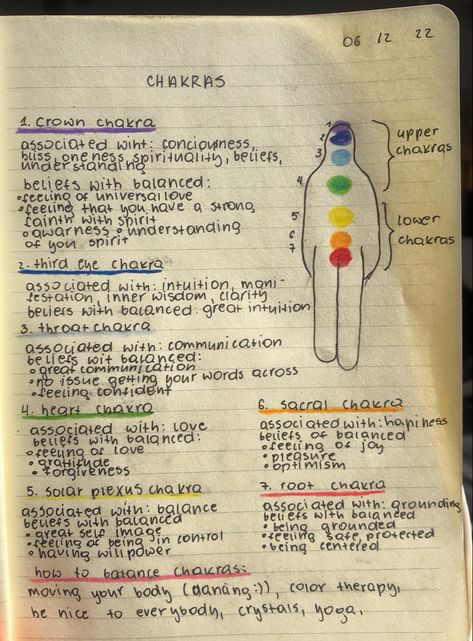 06 12 22
CHAKRAS
1. crown chakra
associated wiht: conciousness,
bliss, oneness, spirituality, beliefs,
understanding
beliefs with balanced:
• feeling of universal love
• feeling that you have a strong
fainth with spirit
• awarness • understanding
of you spirit
2. third eye chakra
associated with: intuition, mani-
festation, inner wisdom, clarity
beliefs with balanced: great intuition
3. throat chakra
associated with: communication
beliefs wit balanced:
• great communication
• no issue getting your words across
• feeling confident
4. heart chakra
associated with: love
beliefs with balanced:
• feeling of love
• gratitude
• forgiveness
5. solar plexus chakra
associated with: balance
beliefs with balanced
• great self image
• feeling of being in control
• having willpower
1
2
3
4
5
6
7
upper
chakras
lower
chakras
6. sacral chakra
associated with: hapiness
beliefs of balanced
• feeling of joy
• pleasure
• optimism
7. root chakra
associated with: grounding
beliefs with balanced
• being grounded
• feeling safe, protected
• being centered
how to balance chakras:
moving your body (dancing:)), color therapy,
be nice to everybody, crystals, yoga,